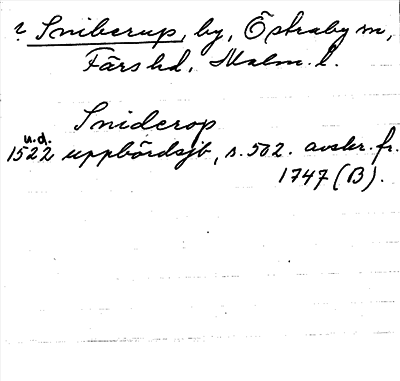 ? Sniberup, by, Östraby sn,
Färs hd. Malm. l.
Sniderop
u.d.
1522 uppbördsjb, s. 502. avskr. fr.
1747 (B).